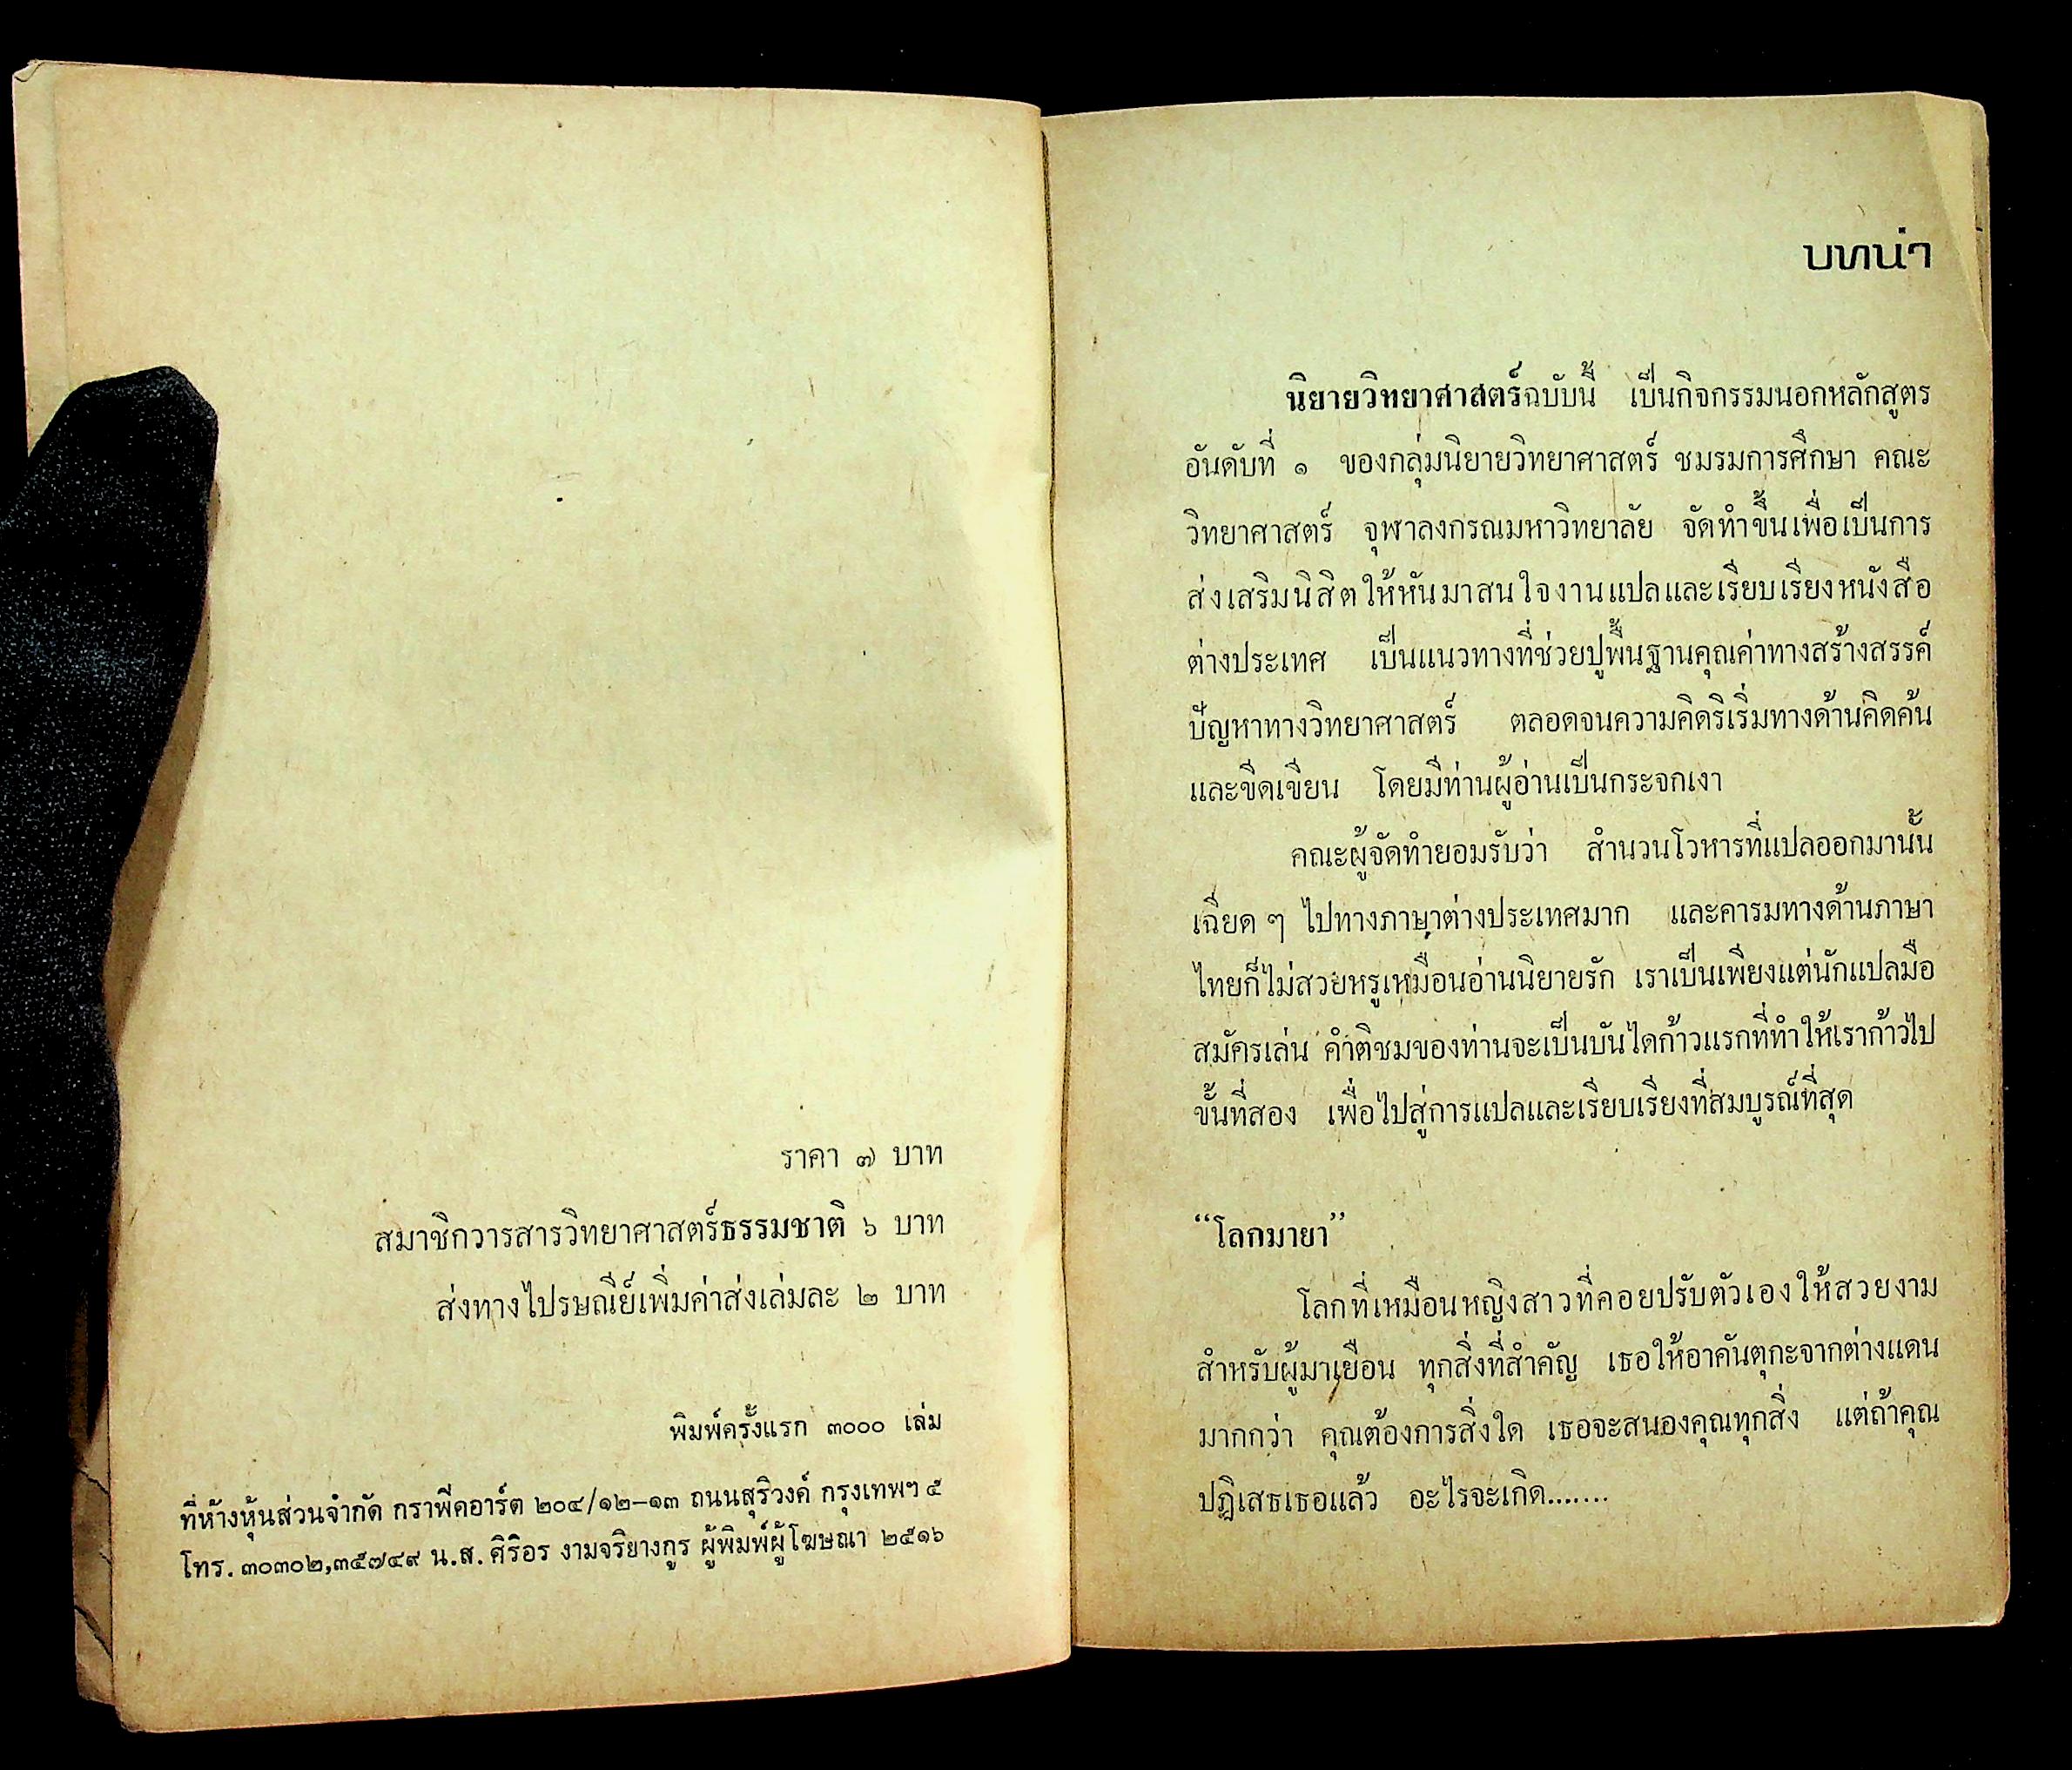 ราคา ๗ บาท
สมาชิกวารสารวิทยาศาสตร์ธรรมชาติ ๖ บาท
ส่งทางไปรษณีย์เพิ่มค่าส่งเล่มละ ๒ บาท
พิมพ์ครั้งแรก ๓๐๐๐ เล่ม
ที่ห้างหุ้นส่วนจำกัด กราฟิคอาร์ต ๒๐๔/๑๒-๑๓ ถนนสุริวงค์ กรุงเทพฯ ๕
โทร. ๓๐๓๐๒,๓๕๗๔๙ น.ส. ศิริอร งามจริยางกูร ผู้พิมพ์ผู้โฆษณา ๒๕๑๖
บทนำ
นิยายวิทยาศาสตร์ฉบับนี้ เป็นกิจกรรมนอกหลักสูตร
อันดับที่ ๑ ของกลุ่มนิยายวิทยาศาสตร์ ชมรมการศึกษา คณะ
วิทยาศาสตร์ จุฬาลงกรณมหาวิทยาลัย จัดทำขึ้นเพื่อเป็นการ
ส่งเสริมนิสิตให้หันมาสนใจงานแปลและเรียบเรียงหนังสือ
ต่างประเทศ เป็นแนวทางที่ช่วยปูพื้นฐานคุณค่าทางสร้างสรรค์
ปัญหาทางวิทยาศาสตร์ ตลอดจนความคิดริเริ่มทางด้านคิดค้น
และขีดเขียน โดยมีท่านผู้อ่านเป็นกระจกเงา
คณะผู้จัดทำยอมรับว่า สำนวนโวหารที่แปลออกมานั้น
เฉียด ๆ ไปทางภาษาต่างประเทศมาก และคารมทางด้านภาษา
ไทยก็ไม่สวยหรูเหมือนอ่านนิยายรัก เราเป็นเพียงแต่นักแปลมือ
สมัครเล่น คำติชมของท่านจะเป็นบันไดก้าวแรกที่ทำให้เราก้าวไป
ขั้นที่สอง เพื่อไปสู่การแปลและเรียบเรียงที่สมบูรณ์ที่สุด
“โลกมายา”
โลกที่เหมือนหญิงสาวที่คอยปรับตัวเองให้สวยงาม
สำหรับผู้มาเยือน ทุกสิ่งที่สำคัญ เธอให้อาคันตุกะจากต่างแดน
มากกว่า คุณต้องการสิ่งใด เธอจะสนองคุณทุกสิ่ง แต่ถ้าคุณ
ปฏิเสธเธอแล้ว อะไรจะเกิด.......